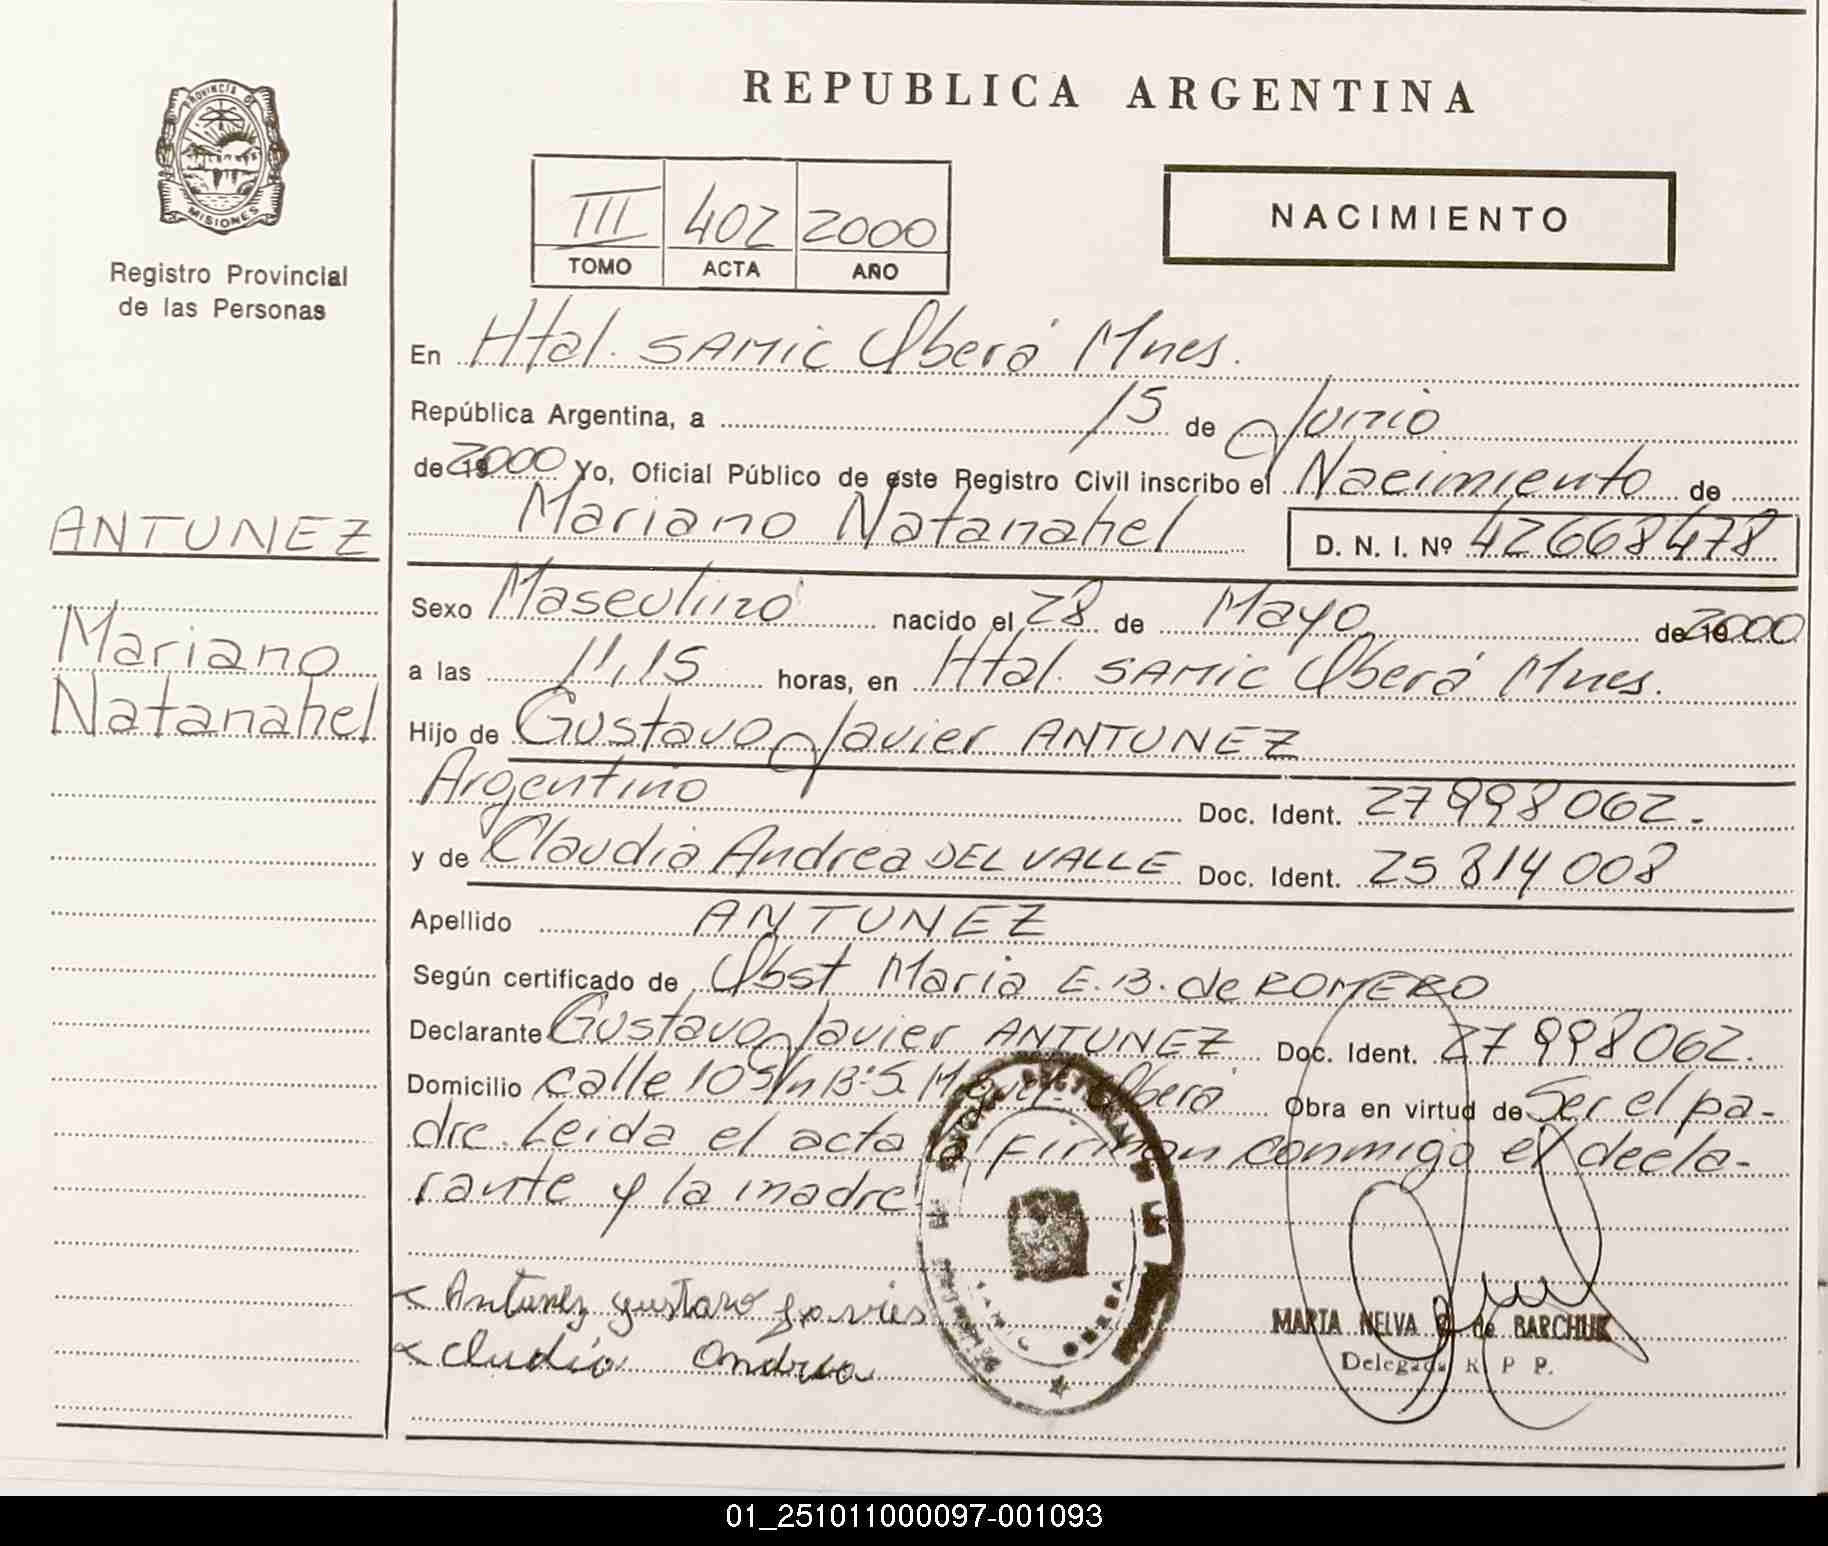 REPUBLICA ARGENTINA
PROVINCIA DE
MISIONES
Registro Provincial
de las Personas
III 402 2000
TOMO ACTA AÑO
NACIMIENTO
En Htal. SAMIC Oberá Mnes.
República Argentina, a 15 de Junio
de 19 2000 Yo, Oficial Público de este Registro Civil inscribo el Nacimiento de
Mariano Natanahel D. N. I. Nº 42668478
ANTUNEZ
Mariano
Natanahel
Sexo Masculino nacido el 28 de Mayo de 19 2000
a las 11,15 horas, en Htal. SAMIC Oberá Mnes.
Hijo de Gustavo Javier ANTUNEZ
Argentino Doc. Ident. 27998062.-
y de Claudia Andrea DEL VALLE Doc. Ident. 25814008
Apellido ANTUNEZ
Según certificado de Obst Maria E. B. de ROMERO
Declarante Gustavo Javier ANTUNEZ Doc. Ident. 27998062.
Domicilio calle 10 S/n Bº S. Oberá Obra en virtud de Ser el pa-
dre. Leida el acta la firman conmigo el decla-
rante y la madre
Antunez gustavo javier
cludia andrea
MARTA NELVA de BARCHUK
Delegada R P P.
01_251011000097-001093